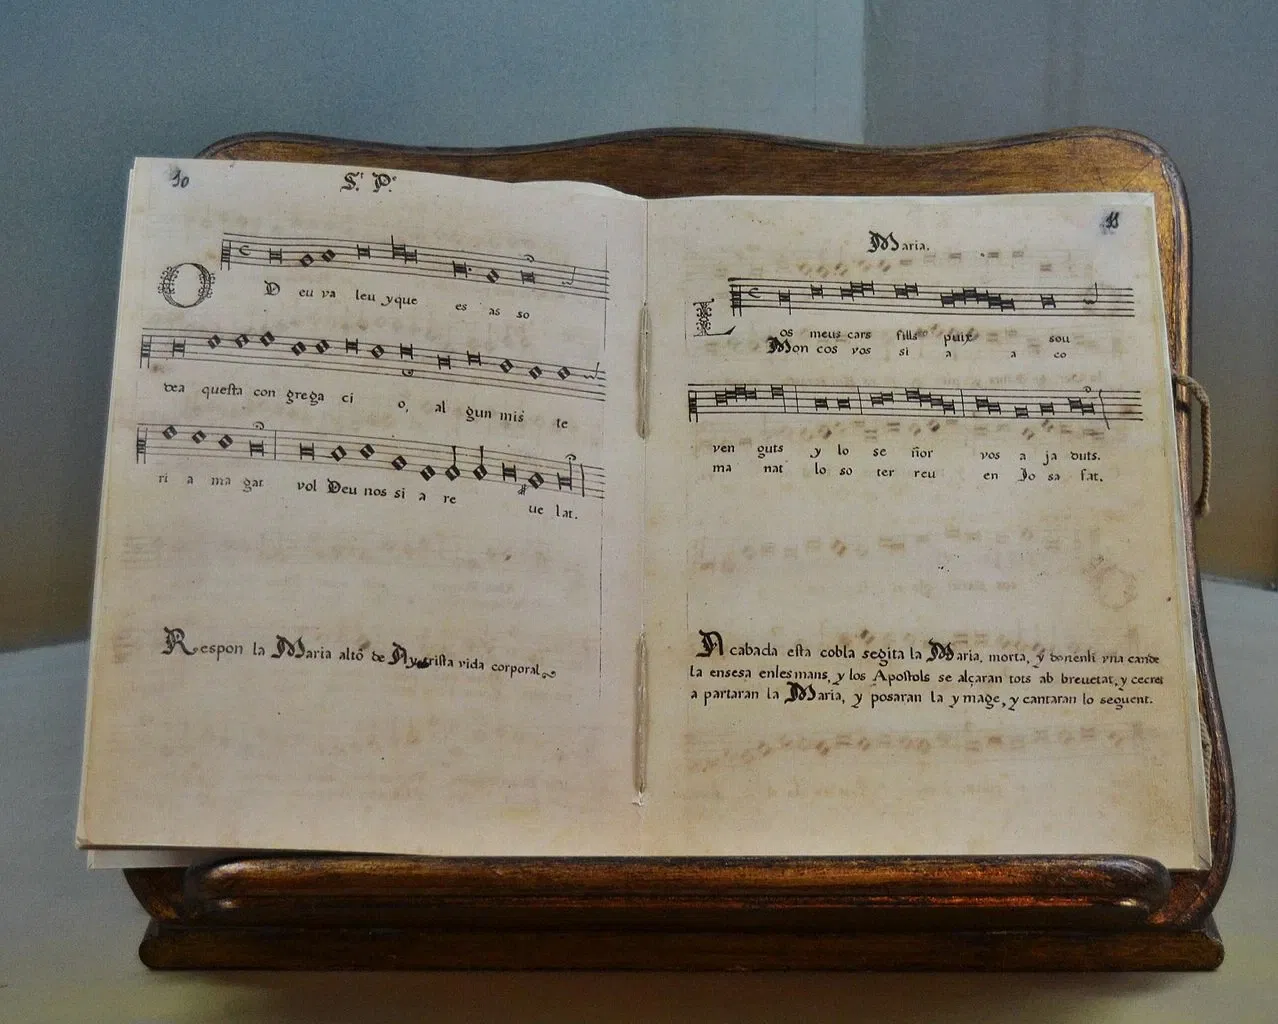 10
S. P.
O Deu va leu y que es as so
dea questa con grega ci o, al gun mis te
ri a ma gat vol Deu nos si a re ue lat.
Respon la Maria alto de trista vida corporal
11
Maria.
Los meus cars fills puix sou
Mon cos vos si a a co
ven guts y lo se ñor vos a ja duts.
ma nat lo so ter reu en Jo sa fat.
Acabada esta cobla segita la Maria, morta, y donenli vna cande
la ensesa enles mans, y los Apostols se alçaran tots ab breuetat, y cecret
a partaran la Maria, y posaran la ymage, y cantaran lo seguent.